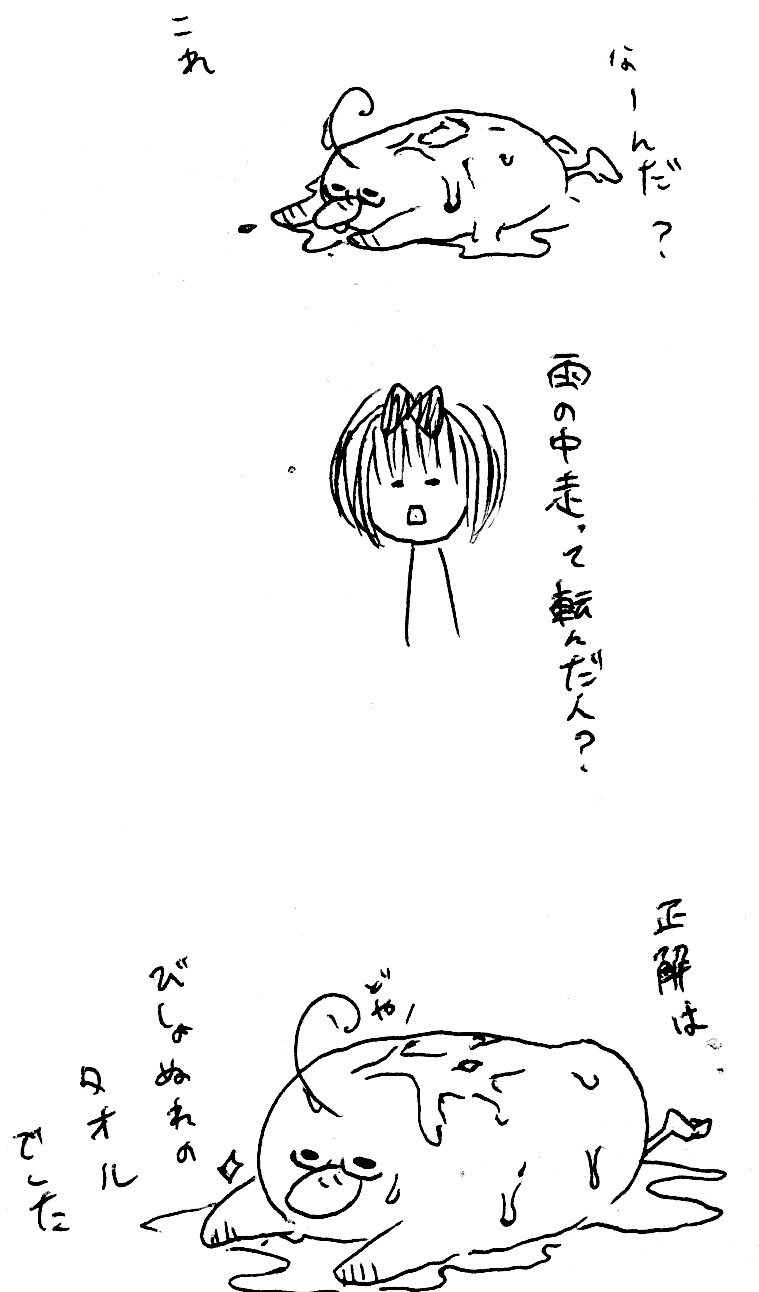 これ
なーんだ?
雨の中走って転んだ人?
正解は
どやっ
びしょぬれの
タオル
でした